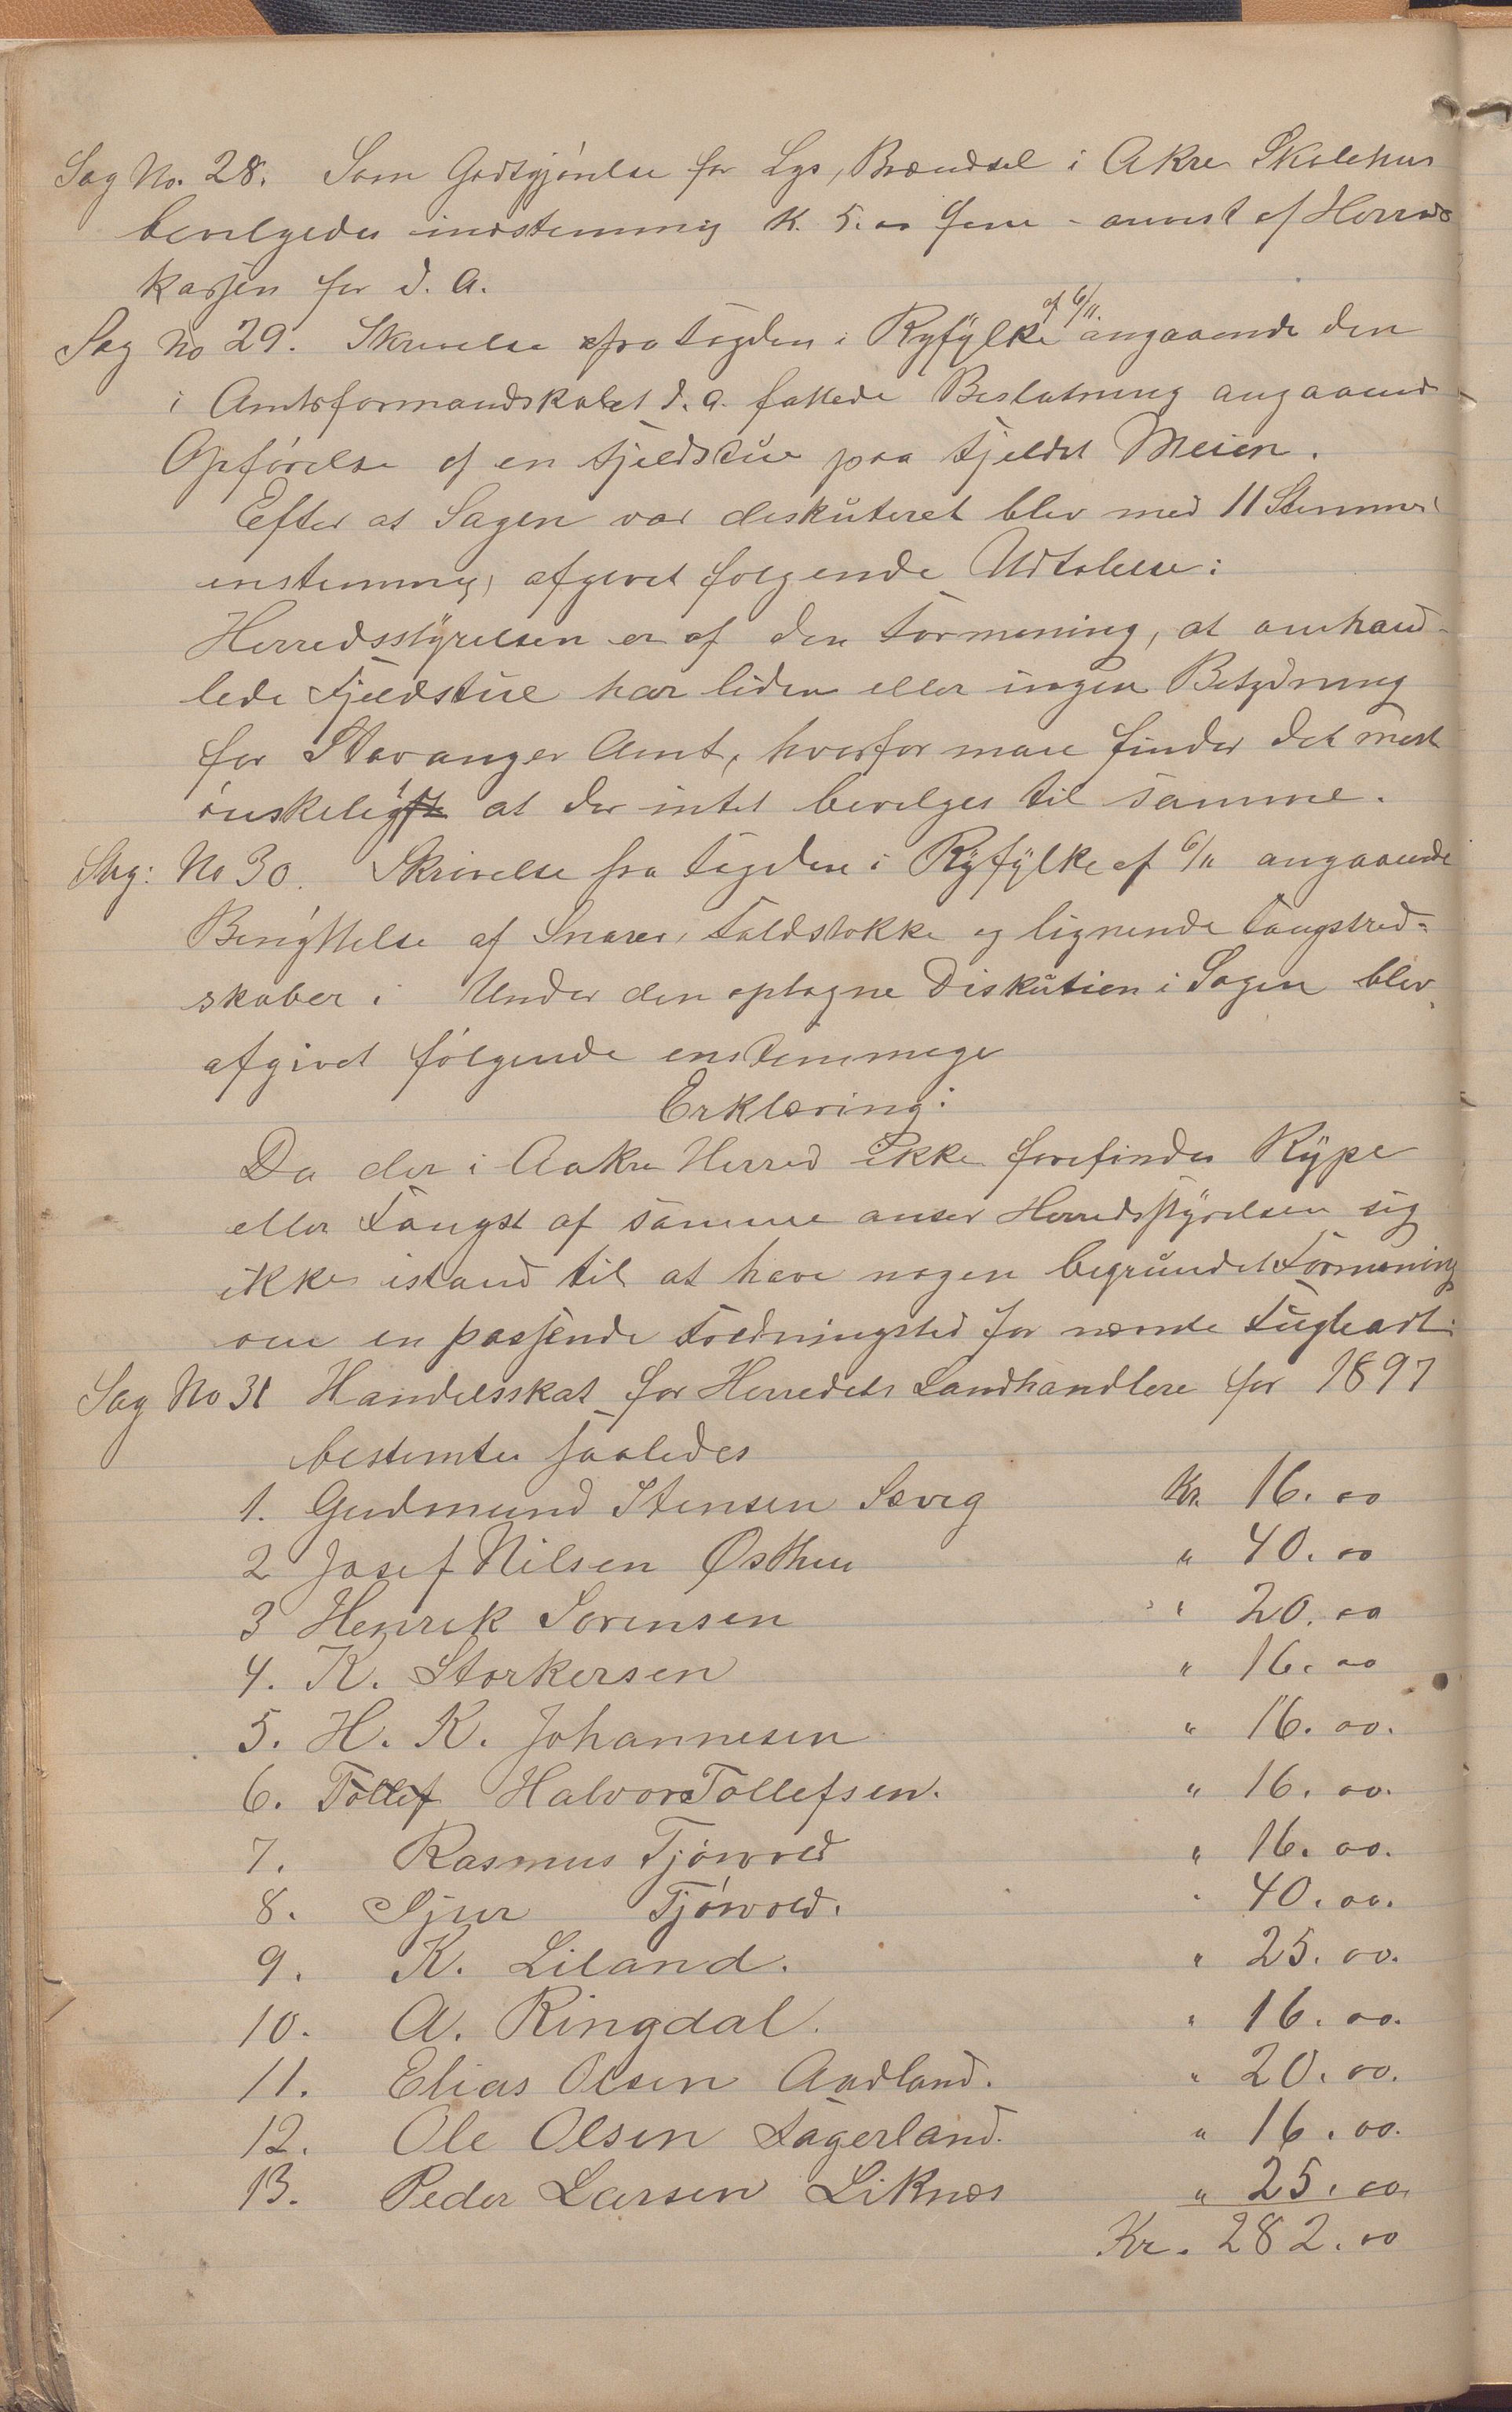 Sag No. 28. Som Godtgjörelse for Lys, Brændsel i Akre Skolehus
bevilgedes indstemmig K. 5.00 fem - anvist af Herreds
kassen for d. A.
Sag No 29. Skrivelse fra Fogden i Ryfÿlke af 6/11 angaaende den
i Amtsformandskabet d. a. fattede Beslutning angaaende
Opförelse af en Fjeldstue paa Fjeldet Meien.
Efter at Sagen var diskuteret blev med 11 Stemmer
enstemmig, afgivet folgende Udtalelse:
Herredsstÿrelsen er af den Formening, at omhand-
lede Fjeldstue har liden eller ingen Betydning
for Stavanger Amt, hvorfor man finder det mest
önskeligt at der intet bevilges til samme.
Sag: No 30. Skrivelse fra Fogden i Rÿfÿlke af 6/11 angaaende
Benÿttelse af Snarer, Faldstokke og lignende Fangstred-
skaber i Under den optagne Diskution i Sagen blev
afgivet fölgende enstemmige
Erklæring:
Da der i Aakre Herred ikke forefindes Rÿpe
eller Fangst af samme anser Herredsstÿrelsen sig
ikke istand til at have nogen begrundet Formening
om en passende Fredningstid for nævnte Fugleart.
Sag No 31 Handelsskat for Herredets Landhandlere for 1897
bestemtes saaledes
1. Gudmund Stensen Sævig Kr. 16.00
2 Josef Nilsen Østhus " 40.00
3 Henrik Sorensen " 20.00
4. K. Storkersen " 16.00
5. H. K. Johannesen " 16.00.
6. Tollef Halvor Tollefsen. " 16.00.
7. Rasmus Tjösvold " 16.00.
8. Sjur Tjösvold. " 40.00.
9. K. Liland. " 25.00.
10. A. Ringdal. " 16.00.
11. Elias Olsen Aadland. " 20.00.
12. Ole Olsen Fagerland. " 16.00.
13. Peder Larsen Liknæs " 25.00.
Kr. 282.00